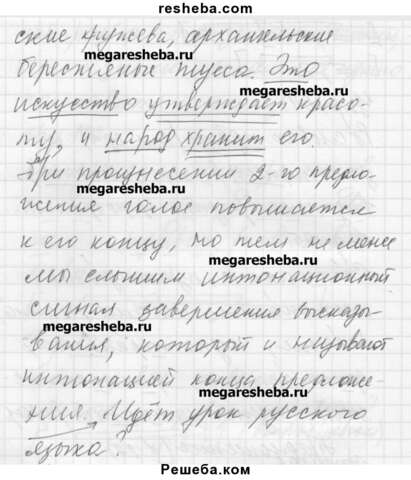 resheba.com
ские кружева, архангельские
megaresheba.ru
берестяные туеса. Это
искусство утверждает красо-
ту, и народ хранит его.
При произнесении 2-го предло-
megaresheba.ru
жения голос повышается
к его концу, но тем не менее
megaresheba.ru
мы слышим интонационный
сигнал завершения высказы-
megaresheba.ru
вания, который и называют
интонацией конца предложе-
megaresheba.ru
ния. Идёт урок русского
языка?
Решеба.ком